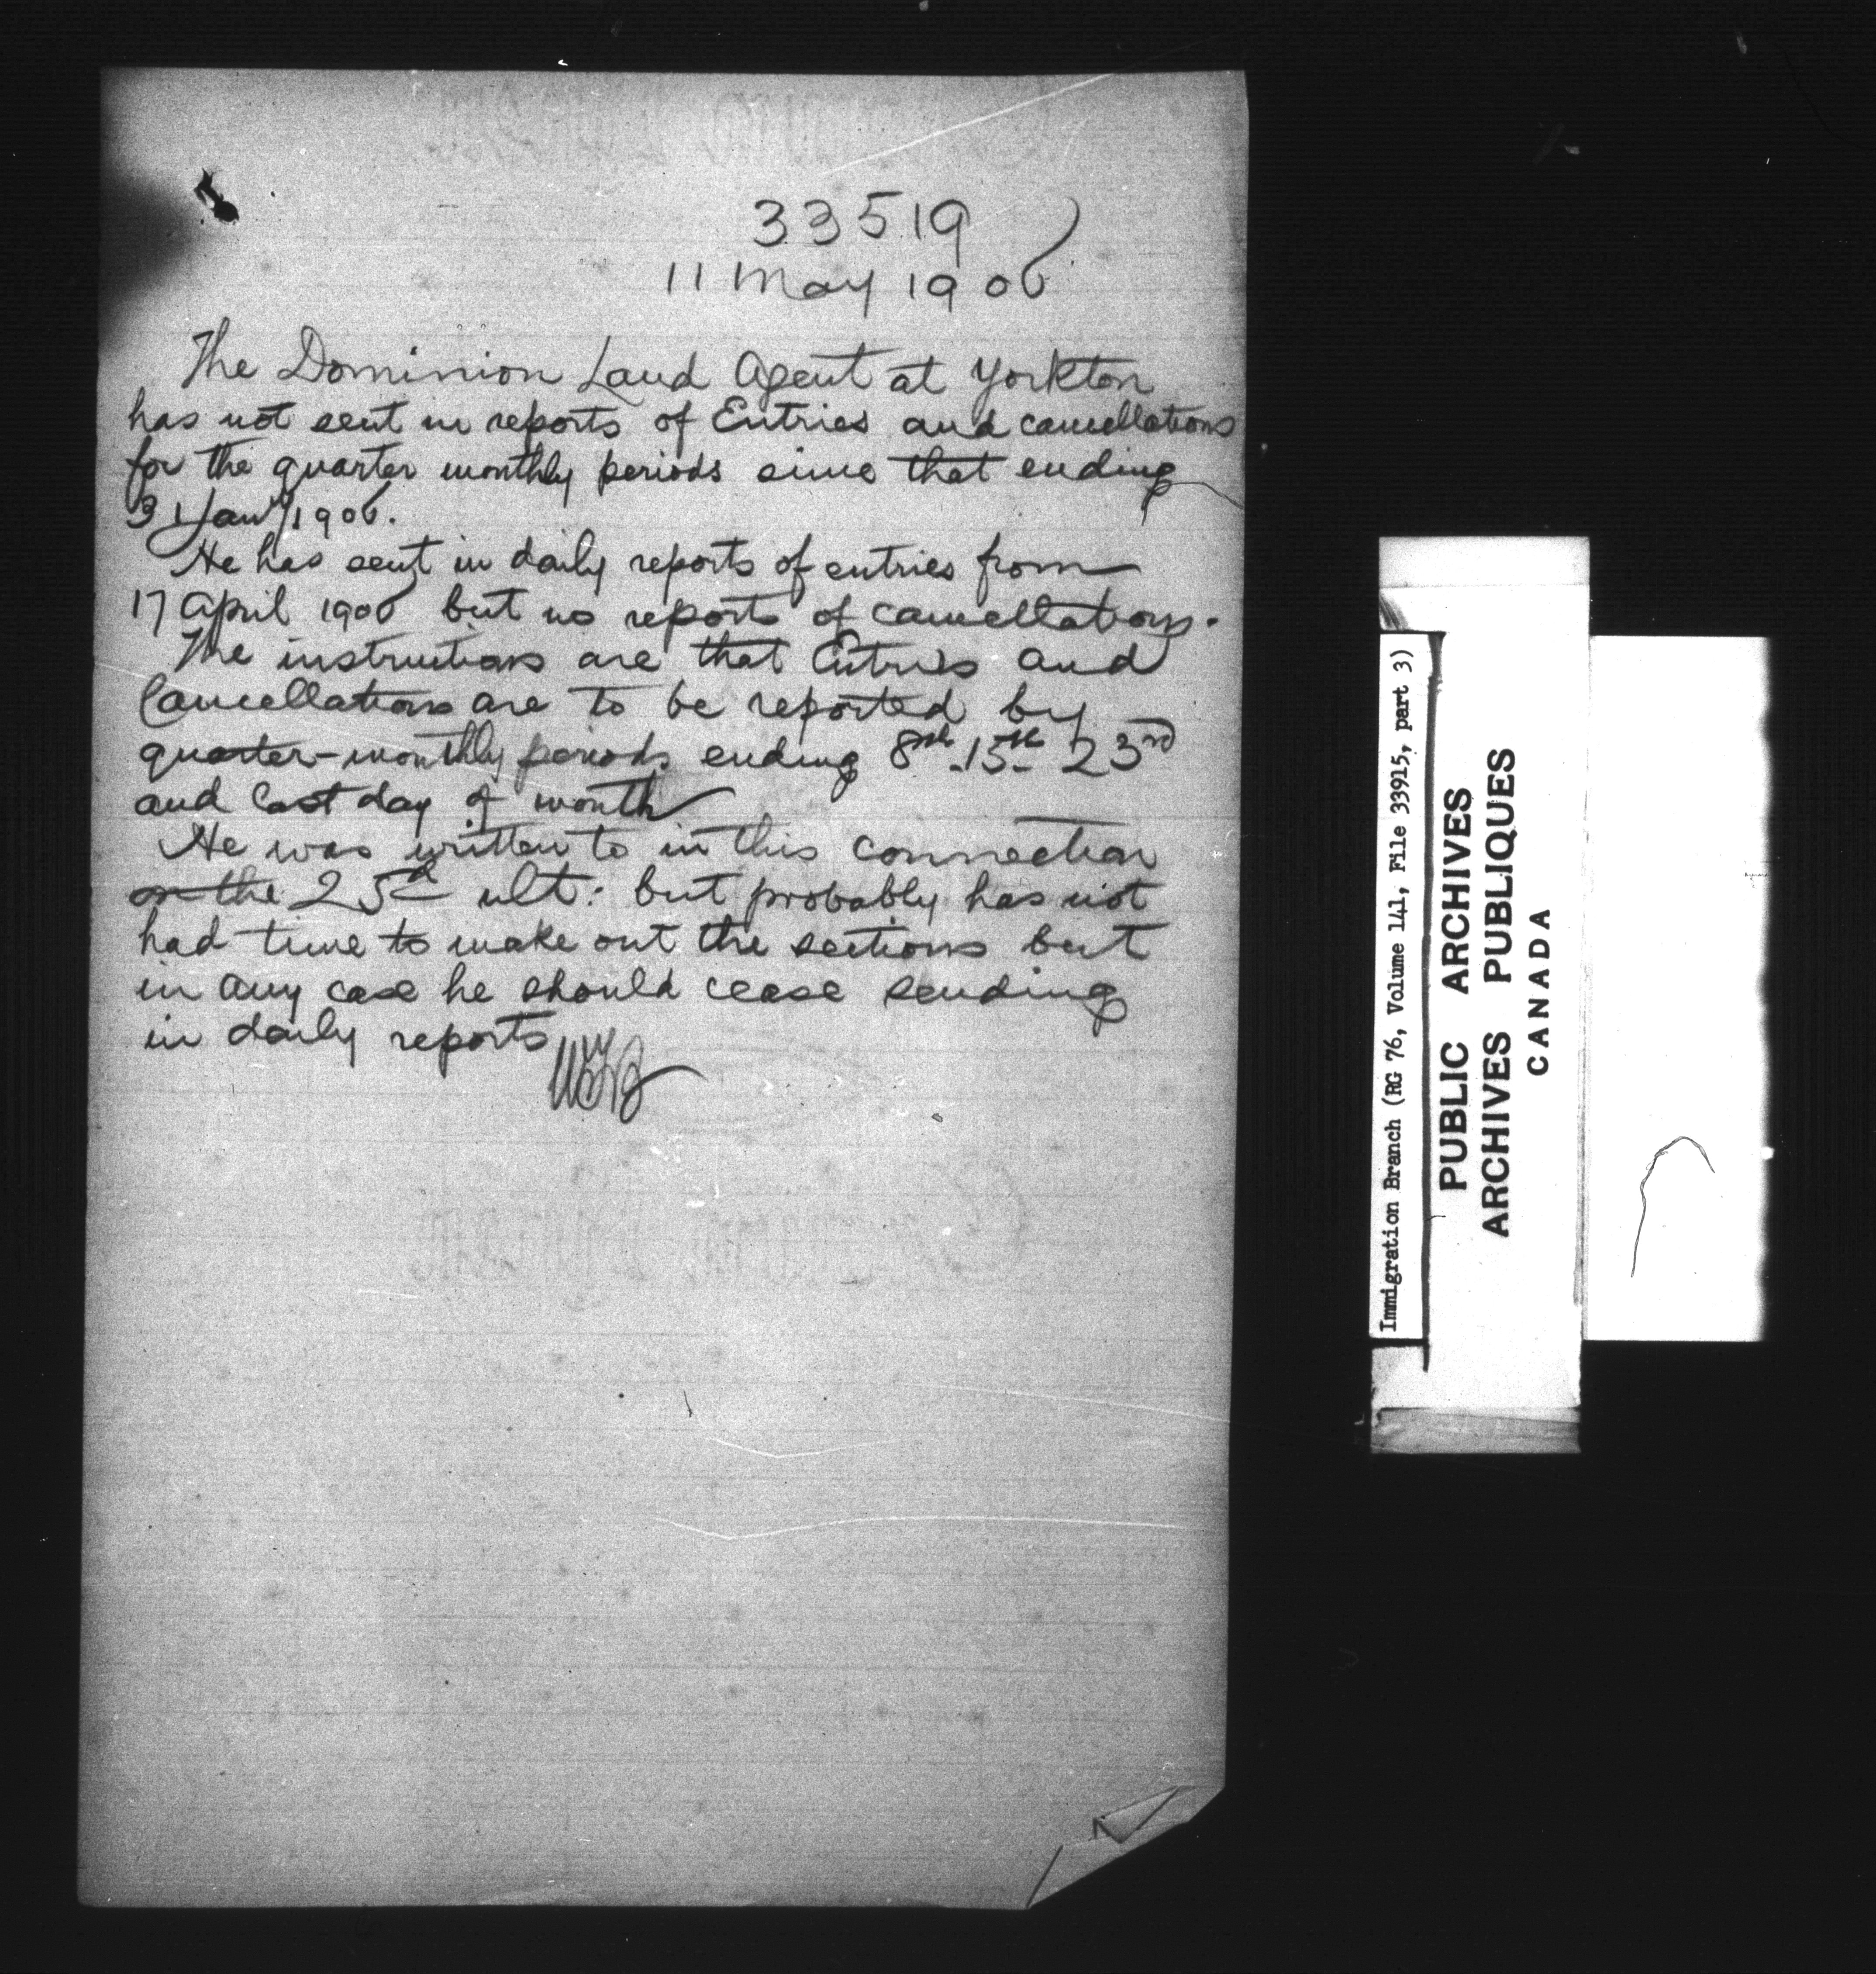 33519
11 May 1906
The Dominion Land Agent at Yorkton
has not sent in reports of Entries and cancellations
for the quarter monthly periods since that ending
31 Jany 1906.
He has sent in daily reports of entries from
17 April 1906 but no reports of cancellations.
The instructions are that Entries and
Cancellations are to be reported by
quarter-monthly periods ending 8th 15th 23rd
and last day of month
He was written to in this connection
on the 25th ult: but probably has not
had time to make out the sections but
in any case he should cease sending
in daily reports
Immigration Branch (RG 76, Volume 141, File 33915, part 3)
PUBLIC ARCHIVES
ARCHIVES PUBLIQUES
CANADA